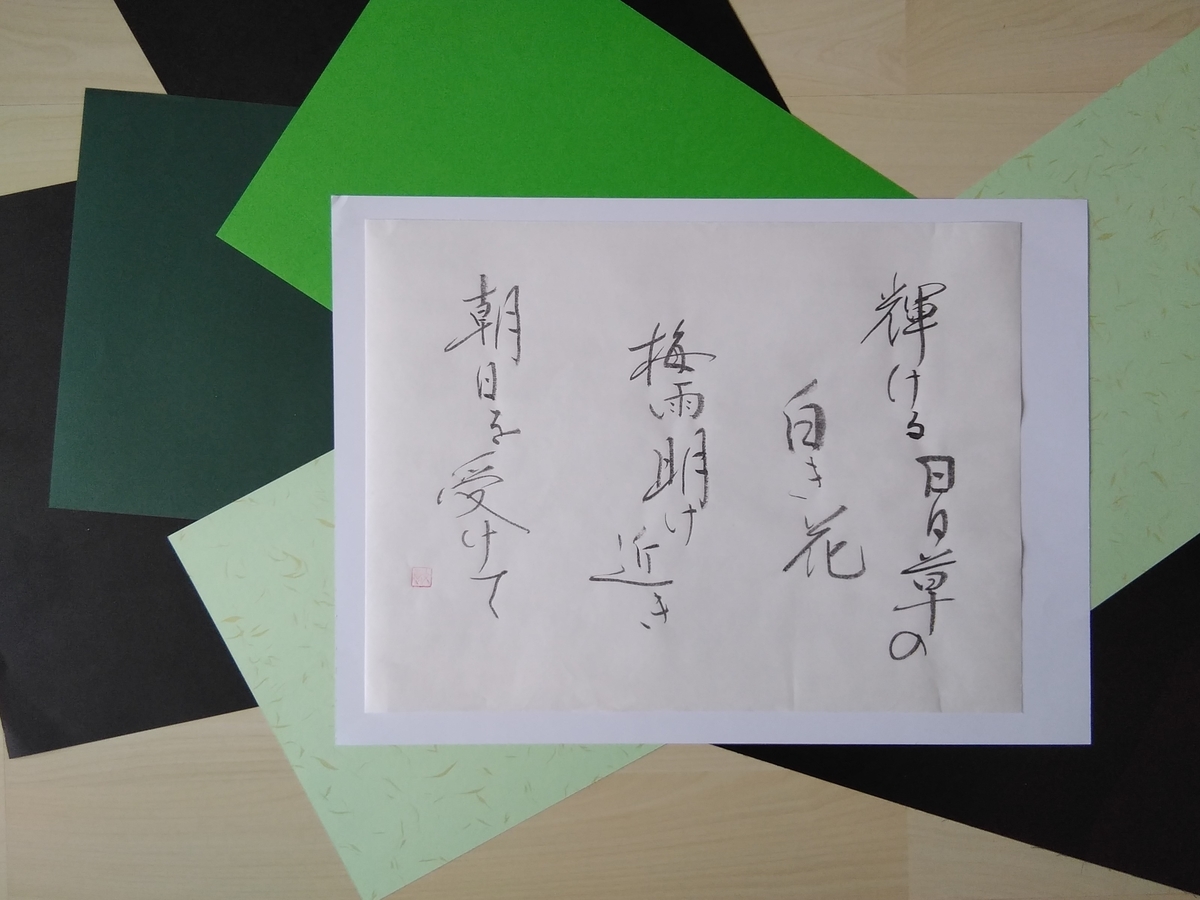 輝ける日日草の
白き花
梅雨明け近き
朝日を受けて